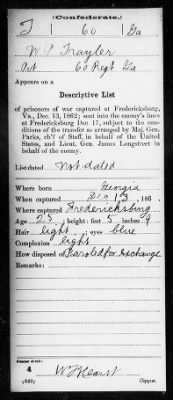 (Confederate.)
T 60 Ga
W. P. Trayler
Pvt 60 Regt Ga
Appears on a
Descriptive List
of prisoners of war captured at Fredericksburg,
Va., Dec. 13, 1862; sent into the enemy's lines
at Fredericksburg Dec 17, subject to the con-
ditions of the transfer as arranged by Maj. Gen.
Parks, ch'f of Staff, in behalf of the United
States, and Lieut. Gen. James Longstreet in
behalf of the enemy.
List dated Not dated
Where born Georgia
When captured Dec 13, 186 .
Where captured Fredericksburg
Age 23; height: foot 5 inches 9
Hair light; eyes blue
Complexion light
How disposed of Paroled for Exchange
Remarks:
Number of roll:
4 W F Hearst
(639) Copyist.